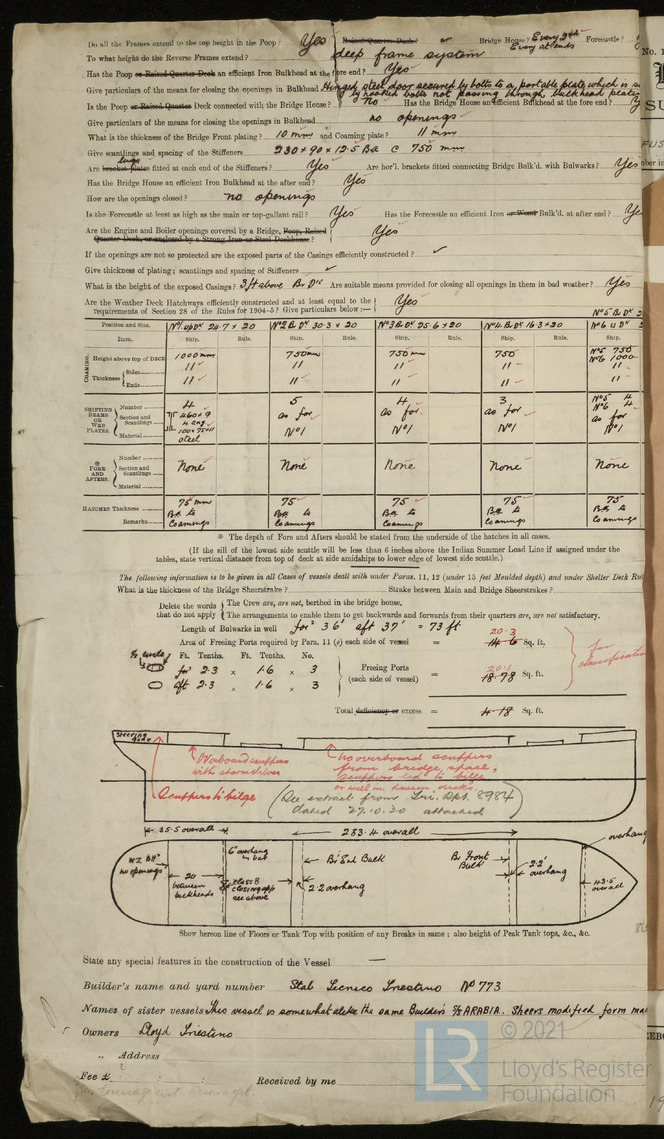 Do all the Frames extend to the top height in the Poop? Yes Raised Quarter Deck? Bridge House? Every 3rd Every at ends Forecastle?
To what height do the Reverse Frames extend? deep frame system
Has the Poop or Raised Quarter Deck an efficient Iron Bulkhead at the fore end? Yes
Give particulars of the means for closing the openings in Bulkhead Hinged steel door secured by bolts to a portable plate which is
by hooked bolts not passing through bulkhead plating
Is the Poop or Raised Quarter Deck connected with the Bridge House? No Has the Bridge House an efficient Bulkhead at the fore end?
Give particulars of the means for closing the openings in Bulkhead no openings
What is the thickness of the Bridge Front plating? 10 mm and Coaming plate? 11 mm
Give scantlings and spacing of the Stiffeners 230 × 90 × 12.5 BA @ 750 mm
Are bracket plates lugs fitted at each end of the Stiffeners? Yes Are hor'l. brackets fitted connecting Bridge Bulk'd. with Bulwarks? Yes
Has the Bridge House an efficient Iron Bulkhead at the after end? Yes
How are the openings closed? no openings
Is the Forecastle at least as high as the main or top-gallant rail? Yes Has the Forecastle an efficient Iron or Wood Bulk'd. at after end?
Are the Engine and Boiler openings covered by a Bridge, Poop, Raised Yes
Quarter Deck, or enclosed by a Strong Iron or Steel Deckhouse?
If the openings are not so protected are the exposed parts of the Casings efficiently constructed?
Give thickness of plating; scantlings and spacing of Stiffeners
What is the height of the exposed Casings? 3 ft above Br Dk Are suitable means provided for closing all openings in them in bad weather? Yes
Are the Weather Deck Hatchways efficiently constructed and at least equal to the Yes
requirements of Section 28 of the Rules for 1904-5? Give particulars below:—
Position and Size. Nº1 upDk 24.7 × 20 Nº2 B Dk 30.3 × 20 Nº3 B Dk 25.6 × 20 Nº4 B Dk 16.3 × 20 Nº5 B Dk Nº6 U Dk
Item. Ship. Rule. Ship. Rule. Ship. Rule. Ship. Rule. Ship.
COAMING. Height above top of DECK 1000 mm 750 mm 750 mm 750 Nº5 750 Nº6 1000
Thickness Sides 11 11 11 11 11
Ends 11 11 11 11 11
SHIFTING BEAMS OR WEB PLATES. Number 4 5 4 3 Nº5 4 Nº6 4
Section and Scantlings 460 × 9 4 ang 100 × 75 × 11 as for as for as for as for
Material steel Nº1 Nº1 Nº1 Nº1
* FORE AND AFTERS. Number
Section and Scantlings None None None None None
Material
HATCHES Thickness 75 mm 75 75 75 75
Remarks Bkt to Coamings Bkt to Coamings Bkt to Coamings Bkt to Coamings Bkt to Coamings
* The depth of Fore and Afters should be stated from the underside of the hatches in all cases.
(If the sill of the lowest side scuttle will be less than 6 inches above the Indian Summer Load Line if assigned under the
tables, state vertical distance from top of deck at side amidships to lower edge of lowest side scuttle.)
The following information is to be given in all Cases of vessels dealt with under Paras. 11, 12 (under 15 feet Moulded depth) and under Shelter Deck
What is the thickness of the Bridge Sheerstrake? Strake between Main and Bridge Sheerstrakes?
Delete the words that do not apply The Crew are, are not, berthed in the bridge house.
The arrangements to enable them to get backwards and forwards from their quarters are, are not satisfactory.
Length of Bulwarks in well for'd 36' aft 37' = 73 ft
Area of Freeing Ports required by Para. 11 (e) each side of vessel = 14.6 20.3 Sq. ft.
½ circle Ft. Tenths. Ft. Tenths. No.
for'd 2.3 × 1.6 × 3 Freeing Ports
aft 2.3 × 1.6 × 3 (each side of vessel) = 18.78 20.1 Sq. ft.
for classification
Total deficiency or excess = 4.18 Sq. ft.
Steering gear
Overboard scuppers
with storm valves
No overboard scuppers
from bridge space,
scuppers led to bilge
Scuppers to bilge
(See extract from Tri. Rpt. 8984
dated 27.10.20 attached
35.5 overall 283.4 overall overhang
W.T. Bhd no openings 20 between bulkheads 6' overhang class B closing app see above Br End Bulk 2.2 overhang Br Front Bulk 2.2' overhang 43.5 overall
Show hereon line of Floors or Tank Top with position of any Breaks in same; also height of Peak Tank tops, &c., &c.
State any special features in the construction of the Vessel —
Builder's name and yard number Stab Tecnico Triestino Nº 773
Names of sister vessels This vessel is somewhat alike the same Builder's S/S ARABIA. Sheers modified form
Owners Lloyd Triestino
„ Address
Fee £ : : Received by me
LR © 2021
Lloyd's Register
Foundation